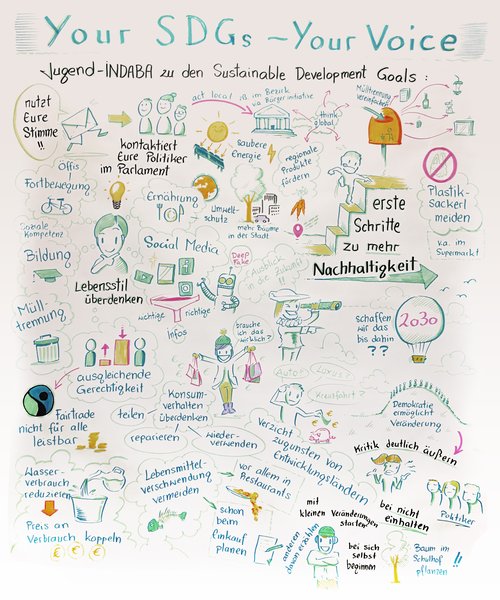 Your SDGs ~ Your Voice
Jugend-INDABA zu den Sustainable Development Goals:
nutzt
Eure
Stimme
!!
kontaktiert
Eure Politiker
im Parlament
act local: zB im Bezirk
via Bürgerinitiative
think
global
Mülltrennung
vereinfachen
saubere
Energie
regionale
Produkte
fördern
Plastik-
Sackerl
meiden
v.a. im
Supermarkt
Öffis
Fortbewegung
Ernährung
Umwelt-
schutz
mehr Bäume
in der Stadt
erste
Schritte
zu mehr
Nachhaltigkeit
Soziale
Kompetenz?
Bildung
Lebensstil
überdenken
Social Media
Deep
Fake
Ausblick
in die Zukunft
wichtige
richtige
Infos
Müll-
trennung
brauche
ich das
wirklich?
schaffen
wir das
bis dahin
??
2030
ausgleichende
Gerechtigkeit
Auto
Luxus?
Kreuzfahrt
Fairtrade
nicht für alle
leistbar
Konsum-
verhalten
überdenken
teilen
reparieren
wieder-
verwenden
Verzicht
zugunsten von
Entwicklungsländern
Demokratie
ermöglicht
Veränderung
Kritik deutlich äußern
Wasser-
verbrauch
reduzieren
Preis an
Verbrauch koppeln
€ € €
Lebensmittel-
verschwendung
vermeiden
vor allem in
Restaurants
schon
beim
Einkauf
planen
mit
kleinen Veränderungen
starten
bei nicht
einhalten
Politiker
anderen
davon erzählen
bei sich
selbst
beginnen
Baum im
Schulhof
pflanzen
!!